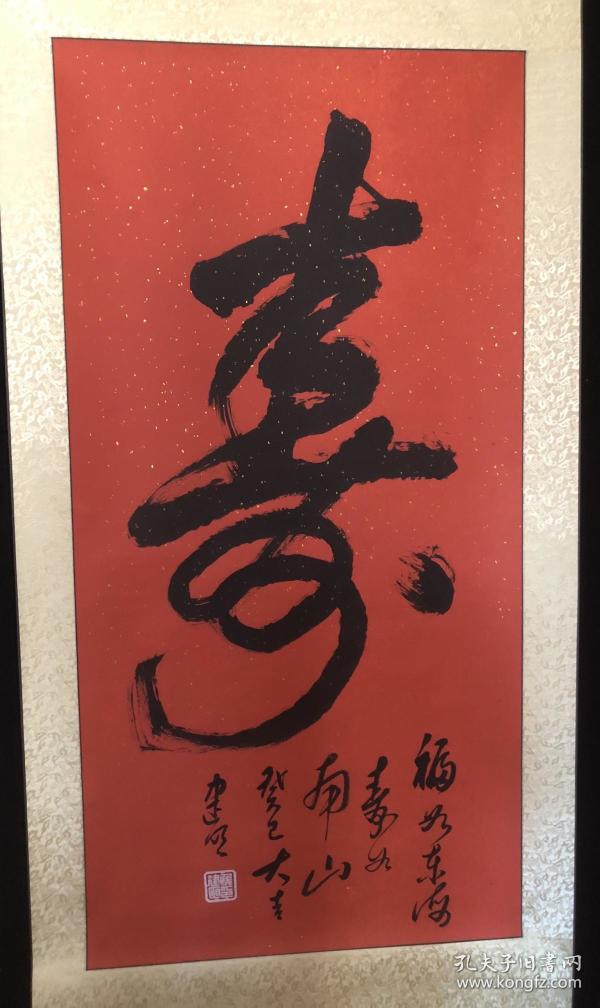 寿
福如东海
寿如
南山
癸巳大吉
建明
孔夫子旧書网
www.kongfz.com